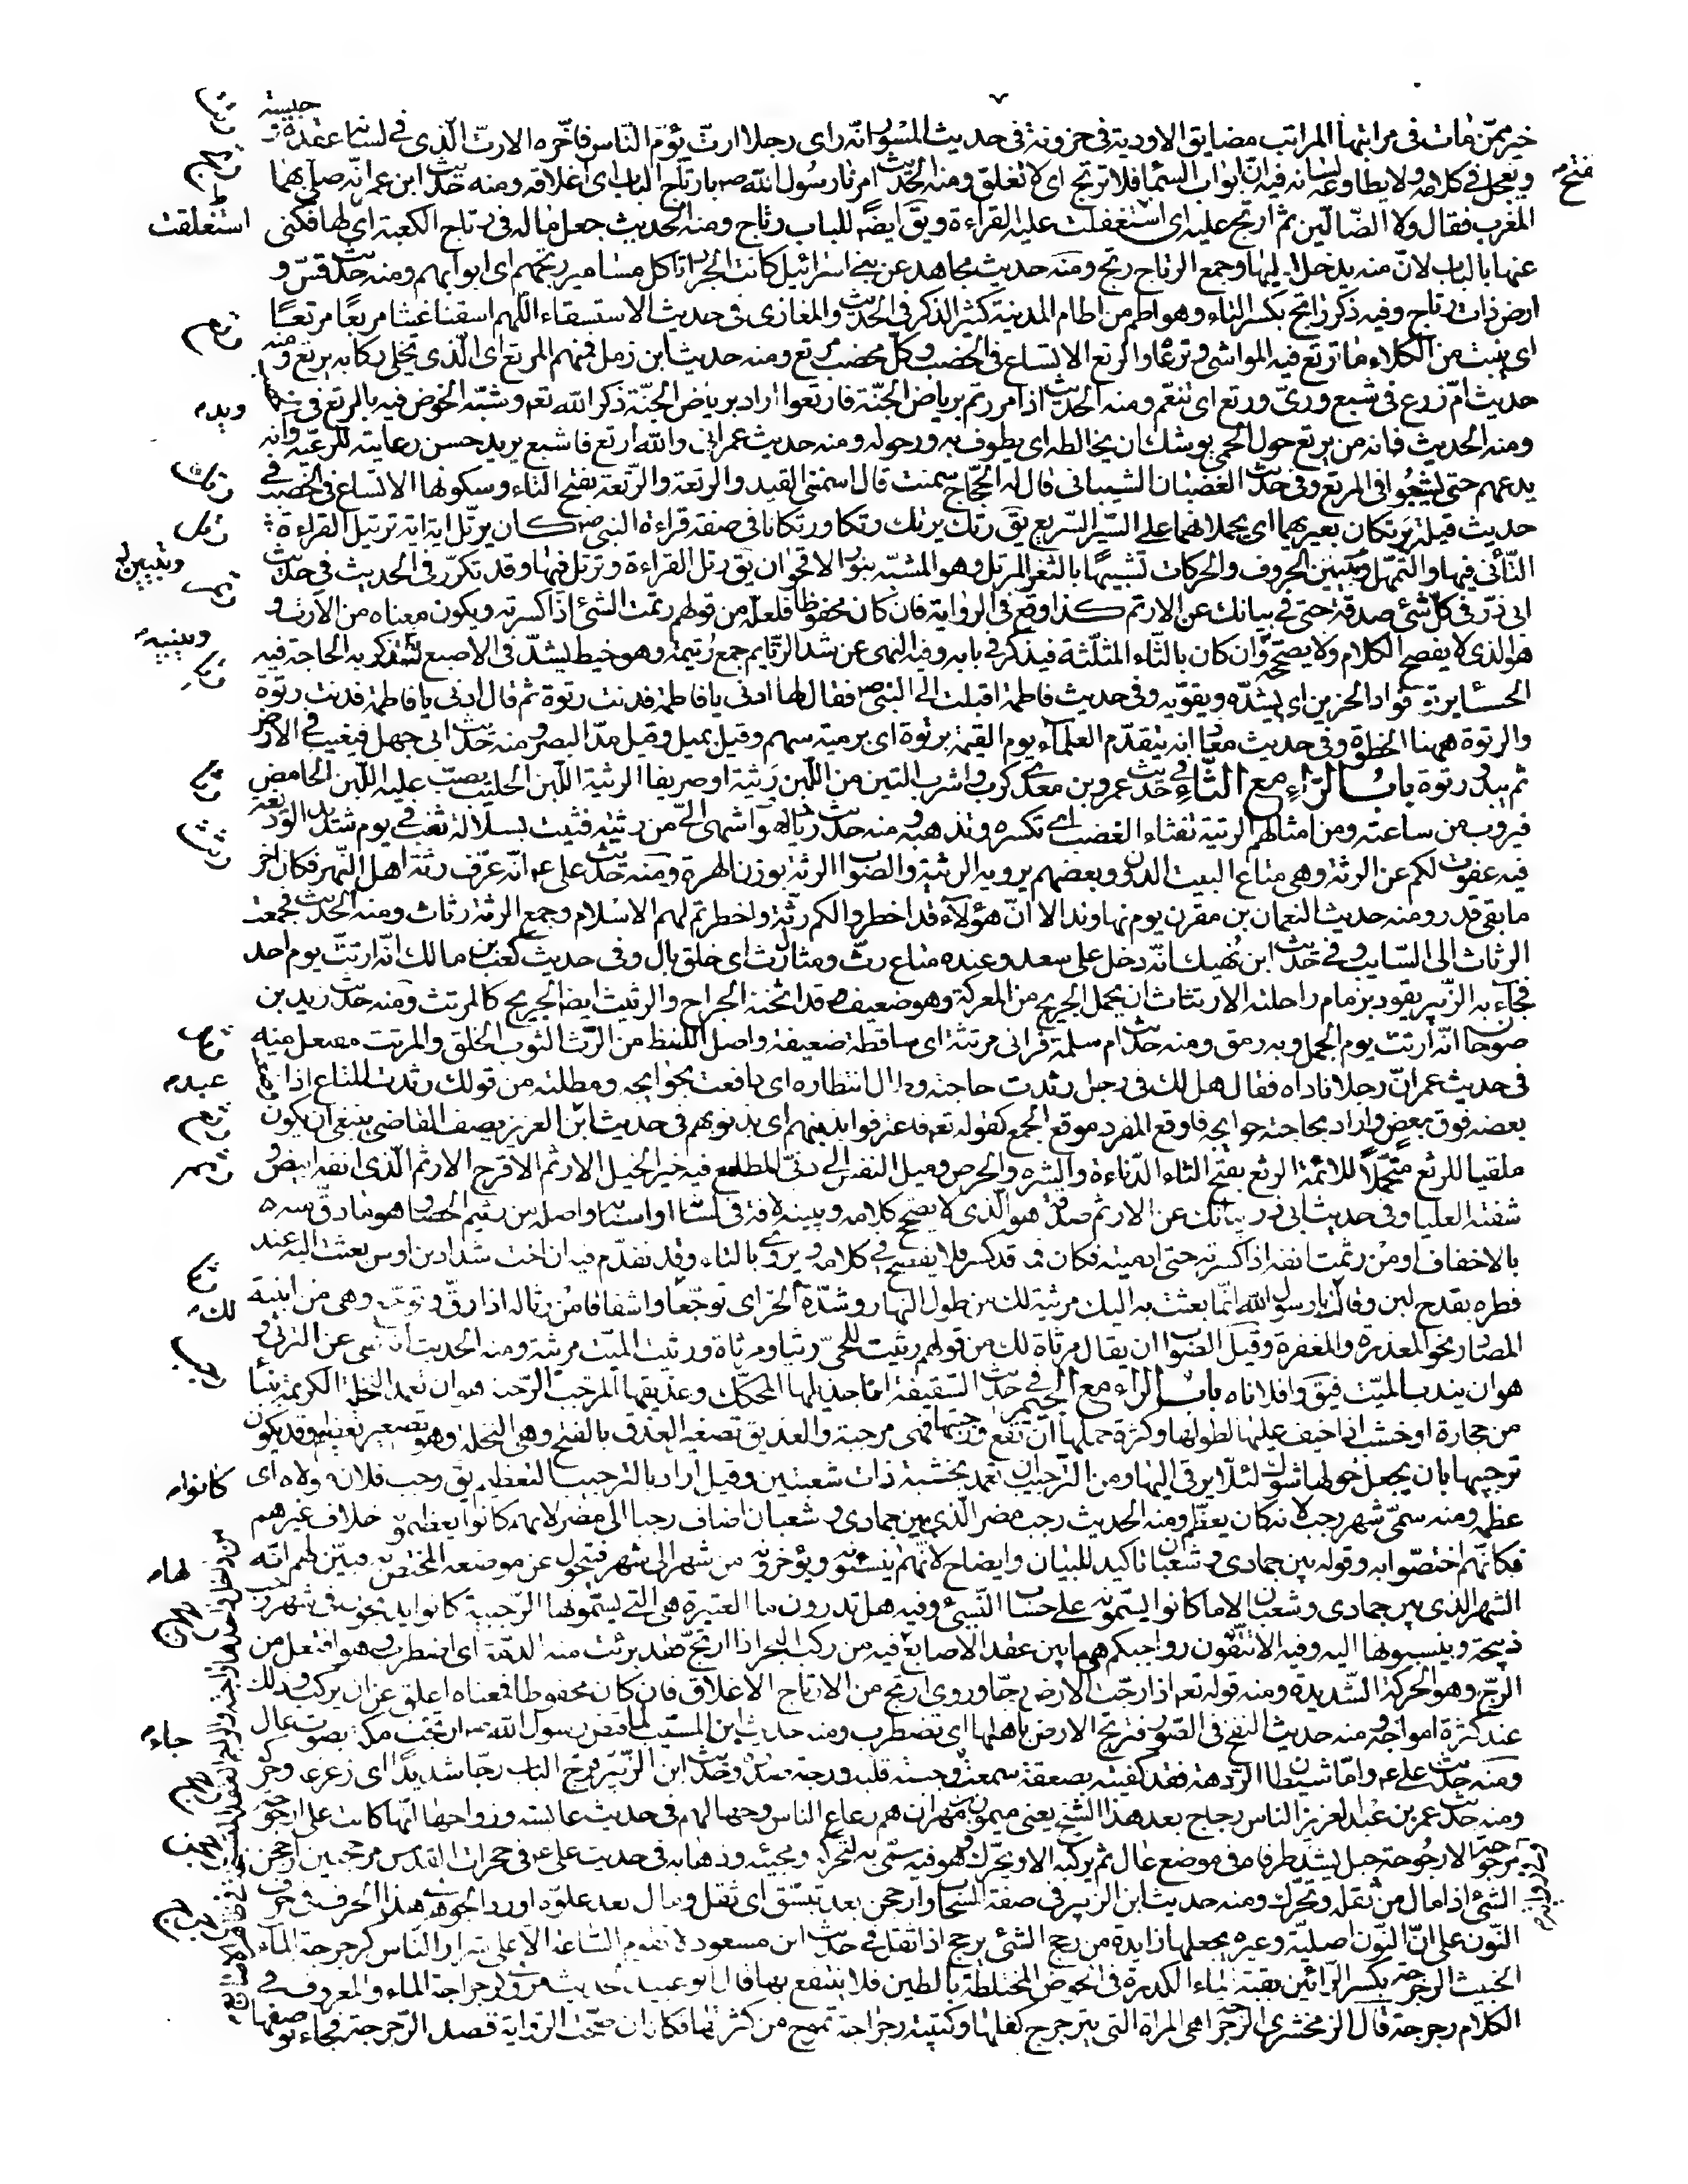 خير ممّن مات فى مراتبها المراتب مضايق الاودية فى حزونة فى حديث المسور انه راى رجلا ارتّ يؤمّ النّاس فاخّره الارتّ الّذى فى لسانه عقدة و حبسة
ويعجل فى كلامه ولا يطاوعه لسانه فيه انّ ابواب السّما تفتح فلا ترتج اى لا تغلق ومنه الحديث امرنا رسول الله ص بارتاج الباب اى اغلاقه ومنه حديث ابن عمر انّه صلّى بهما
المغرب فقال ولا الضّالّين ثمّ ارتج عليه اى استغلقت عليه القراءة ويق ايضا للباب رتاج ومنه الحديث جعل ماله فى رتاج الكعبة اى لها فكنى
عنها بالباب لانّ منه يدخل اليها وجمع الرتاج رتج ومنه حديث مجاهد عن بنى اسرائيل كانت الجراد تاكل مسامير رتجهم اى ابوابهم ومنه حديث قسّ و
ارض ذات رتاج وفيه ذكر راتج بكسر التاء وهو اطم من اطام المدينة كثير الذكر فى الحديث والمغازى فى حديث الاستسقاء اللهم اسقنا غيثا مريعا مرتعا
اى ينبت من الكلاء ما ترتع فيه المواشى وترعاه والرتع الاتساع فى الخصب وكلّ مخصب مرتع ومنه حديث ابن زمل فمنهم المرتع اى الّذى يخلى ركابه يرتع ومنه
حديث امّ زرع فى شبع ورىّ ورتع اى تنعّم ومنه الحديث اذا مررتم برياض الجنّة فارتعوا اراد برياض الجنّة ذكر الله تعه وشبّه الخوض فيه بالرتع فى
ومنه الحديث فانه من يرتع حول الحمى يوشك ان يخالطه اى يطوف به ويدور حوله ومنه حديث عمر انى والله ارتع فاشبع يريد حسن رعايته للرعيّة وانه
يدعهم حتى يشبعوا فى المرتع وفى حديث الغضبان الشيبانى قال له الحجّاج سمنت قال اسمننى القيد والرتعة والرّتعة بفتح التاء وسكونها الاتساع فى الخصب فى
حديث قيلة ترتكان بعيريهما اى يحملانهما على السّير السّريع يق رتك يرتك رتكا ورتكانا فى صفة قراءة النبى ص كان يرتّل اية اية ترتيل القراءة
التّأنى فيها والتّمهّل وتبيين الحروف والحركات تشبيها بالثغر المرتل وهو المشبّه بنور الاقحوان يق رتل القراءة وترتل فيها وقد تكرّر فى الحديث فى حديث
ابى ذرّ فى كلّ شئ صدقة حتى فى بيانك عن الارتم كذا وقع فى الرواية فان كان محفوظا فلعله من قولهم رتمت الشئ اذا كسرته ويكون معناه من الارتّ و
هو الذى لا يفصح الكلام ولا يصحّحه ولا يبينه وان كان بالثّاء المثلّثة فيذكر فى بابه وفيه النهى عن شدّ الرّتايم جمع رتيمة وهو خيط يشدّ فى الاصبع لتستذكر به الحاجة فيه
الحسا يرتو فؤاد الحزين اى يشدّه ويقوّيه وفى حديث فاطمة اقبلت الى النبى ص فقال لها ادنى يا فاطمة فدنت رتوة ثم قال ادنى يا فاطمة فدنت رتوة
والرتوة ههنا الخطوة وفى حديث معاذ انه يتقدّم العلماء يوم القيمة برتوة اى برمية سهم وقيل بميل وقيل مدّ البصر ومنه حديث ابى جهل فيغيب فى الارض
ثم يبدو رتوة باب الرّاء مع الثّاء فى حديث عمرو بن معدى كرب واشرب التين من اللّبن رثيئة او صريفا الرثيّة اللّبن الحليب يصبّ عليه اللّبن الحامض
فيروب من ساعته ومن امثالهم الرثية تفثاء الغضب اى تكسره وتذهبه ومنه حديث زياد لهو اشهى الىّ من رثيئة فثئت بسلالة ثغب فى يوم شديد الوديقة
فيه عفوت لكم عن الرثة وهى متاع البيت الدون وبعضهم يرويه الرثية والصواب الرثة بوزن الهرة ومنه حديث على ع انّه عرّف رثة اهل النّهر فكان اخر
ما بقى قدر ومنه حديث النعمان بن مقرن يوم نهاوند الا انّ هؤلاء قد اخطروا لكم رثّة واخطرتم لهم الاسلام وجمع الرثة رثاث ومنه الحديث فجمعت
الرثاث الى السّايب وفى حديث ابن نهيك انّه دخل على سعد وعنده متاع رثّ ومثال رثّ اى خلق بال وفى حديث كعب بن مالك انّه ارتثّ يوم احد
فجاء به الزّبير يقود بزمام راحلته الارتثاث ان يحمل الجريح من المعركة وهو ضعيف قد اثخنته الجراح والرثيث ايضا الجريح كالمرتث ومنه حديث زيد بن
صوحان انّه ارتثّ يوم الجمل وبه رمق ومنه حديث ام سلمة فرانى مرتثة اى ساقطة ضعيفة واصل اللفظ من الرّثّ الثوب الخلق والمرتث مفتعل منه
فى حديث عمر انّ رجلا ناداه فقال هل لك فى رجل رثدت حاجته وطال انتظاره اى دافعت بحوايجه ومطلته من قولك رثدت المتاع اذا وضعت
بعضه فوق بعض واراد بحاجته حوايجه فاوقع المفرد موقع الجمع كقوله تعه فاعترفوا بذنبهم اى بذنوبهم فى حديث ابن عبد العزيز يصف القاضى ينبغى ان يكون
ملقيا للرثع متحمّلا للائمة الرثع بفتح الثاء الدّناءة والشره والحرص وميل النفس الى دنىّ المطامع فيه خير الخيل الارثم الاقرح الارثم الّذى انفه ابيض و
شفته العليا وفى حديث ابى ذر بيانك عن الارثم صدقة هو الّذى لا يصحّ كلامه ويبينه لافة فى لسانه او اسنانه واصله من رثيم الحصا وهو ما دقّ منه
بالاخفاف او من رثمت انفه اذا كسرته حتى ادميته فكان فمه قد كسر فلا يفصح فى كلامه ويروى بالتاء وقد تقدّم فيه ان اخت شداد بن اوس بعثت اليه عند
فطره بقدح لبن وقالت يا رسول الله انّما بعثت به اليك مرثية لك من طول النهار وشدّة الحرّ اى توجّعا واشفاقا من رثا له اذا رقّ وتوجّع وهى من ابنية
المصادر نحو المعذرة والمغفرة وقيل الصواب ان يقال مرثاة لك من قولهم رثيت للحىّ رثيا ومرثاة ورثيت الميّت مرثية ومنه الحديث انه نهى عن الترثى و
هو ان يندب الميّت فيق وافلاناه باب الراء مع الجيم فى حديث السّقيفة انا جذيلها المحكّك وعذيقها المرجّب الرّجبة هو ان تعمد النخلة الكريمة ببناء
من حجارة او خشب اذا خيف عليها لطولها وكثرة حملها ان تقع ورجبتها فهى مرجبة والعذيق تصغير العذق بالفتح وهى النخلة وهو تصغير تعظيم وقد يكون
ترجيبها بان يجعل حولها شوك لئلّا يرقى اليها ومن التّرجيب ان تعمد بخشبة ذات شعبتين وقيل اراد بالترجيب التعظيم يق رجب فلان مولاه اى
عظّمه ومنه سمّى شهر رجب لانه كان يعظّم ومنه الحديث رجب مضر الّذى بين جمادى وشعبان اضاف رجبا الى مضر لانهم كانوا يعظمونه خلاف غيرهم
فكانّهم اختصّوا به وقوله بين جمادى وشعبان تاكيد للبيان وايضاح لانّهم كانوا ينسئونه ويؤخرونه من شهر الى شهر فتحول عن موضعه المختص به فبيّن لهم انّه
الشهر الذى بين جمادى وشعبان لا ما كانوا يسمّونه على حساب النّسئ وفيه هل تدرون ما العتيرة هى التى يسمّونها الرّجبية كانوا يذبحون فى شهر رجب
ذبيحة وينسبونها اليه وفيه الا تنقّون رواجبكم هى ما بين عقد الاصابع فيه من ركب البحر اذا ارتجّ فقد برئت منه الذمّة اى اضطرب وهو افتعل من
الرجّ وهو الحركة الشّديدة ومنه قوله تعه اذا رجّت الارض رجّا وروى ارتج من الارتاج الاغلاق فان كان محفوظا فمعناه اغلق عن ان يركب وذلك
عند كثرة امواجه ومنه حديث النفخ فى الصّور فترتج الارض باهلها اى تضطرب ومنه حديث ابن المسيّب لما قبض رسول الله ص ارتجّت مكة بصوت عال
ومنه حديث على ع وامّا شيطان الرّدهة فقد كفيته بصعقة سمعت لها وجبة قلبه ورجة صدره وحديث ابن الزّبير فرجّ الباب رجّا شديدا اى زعزعه وحرّكه
ومنه حديث عمر بن عبد العزيز الناس رجاج بعد هذا الشيخ يعنى ميمون بن مهران هم رعاع الناس وجهالهم فى حديث عايشة وزواجها انّها كانت على ارجوحة
الارجوحة حبل يشدّ طرفاه فى موضع عال ثم يركبه الانسان ويحرّك وهو فيه سمّى به لتحركه ومجيئه وذهابه فى حديث على ع فى حجرات القدس مرجحنين ارجحن
الشئ اذا مال من ثقله وتحرّك ومنه حديث ابن الزبير فى صفة السّحاب وارجحن بعد تبسّق اى ثقل ومال بعد علوّه اورد الجوهرى هذا الحرف فى حرف
النّون على انّ النّون اصليّة وغيره يجعلها زايدة من رجح الشئ يرجح اذا ثقل فى حديث ابن مسعود لا تقوم السّاعة الا على شرار النّاس كرجرجة الماء
الخبيث الرجرجة بكسر الرّائين بقية الماء الكدرة فى الحوض المختلطة بالطين فلا ينتفع بها قال ابو عبيد الحديث يروى كرجراجة الماء والمعروف فى
الكلام رجرجة قال الزمخشرى الرجراجة هى المراة التى يترجرج كفلها وكتيبة رجراجة تموج من كثرتها فكانه ان صحّت الرّواية قصد الرّجرجة فجاء بوصفها
رتت
رتج
استغلقت
رتع
ويدور
رتك
رتل
وتبيين
رتم
ويبينه
رثد
عبد
رثع
رثم
لك
رجب
كانوا
لها
رجج
جاء
رجح
رجحن
رجرج
تفتح